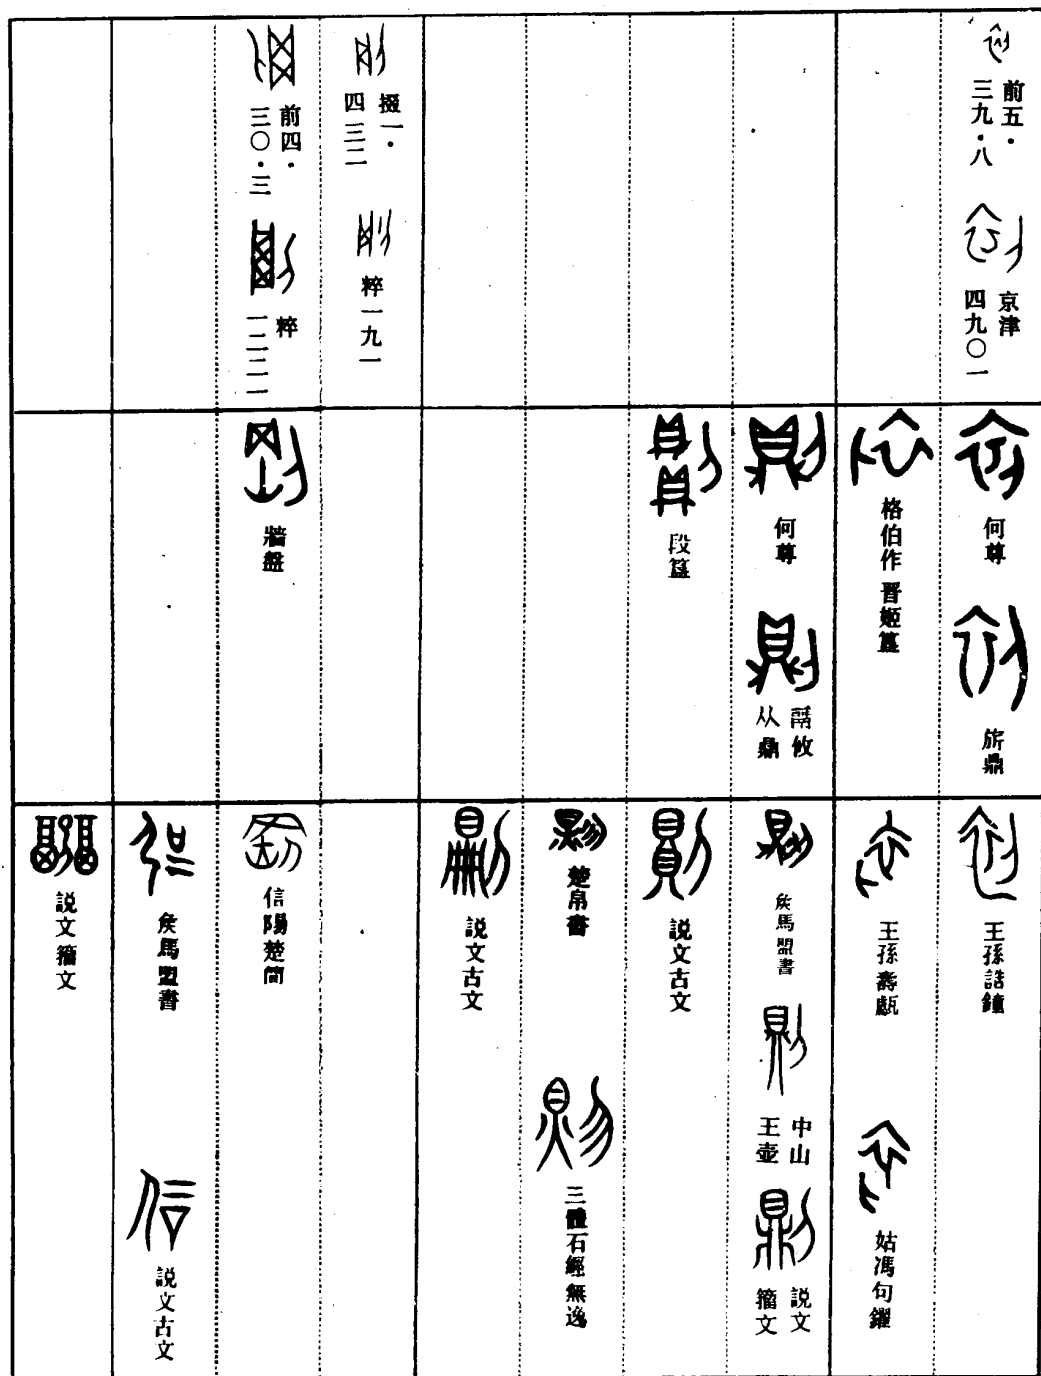 前五・
三九・八
京津
四九〇一
掇一・
四三二
粹一九一
前四・
三〇・三
粹
一二二一
何尊
旂鼎
格伯作晋姬簋
何尊
鬲攸
从鼎
段簋
牆盤
王孫誥鐘
王孫壽甗
姑馮句鑃
矦馬盟書
中山
王壺
説文
籀文
説文古文
楚帛書
三體石經無逸
説文古文
信陽楚簡
矦馬盟書
説文古文
説文籀文